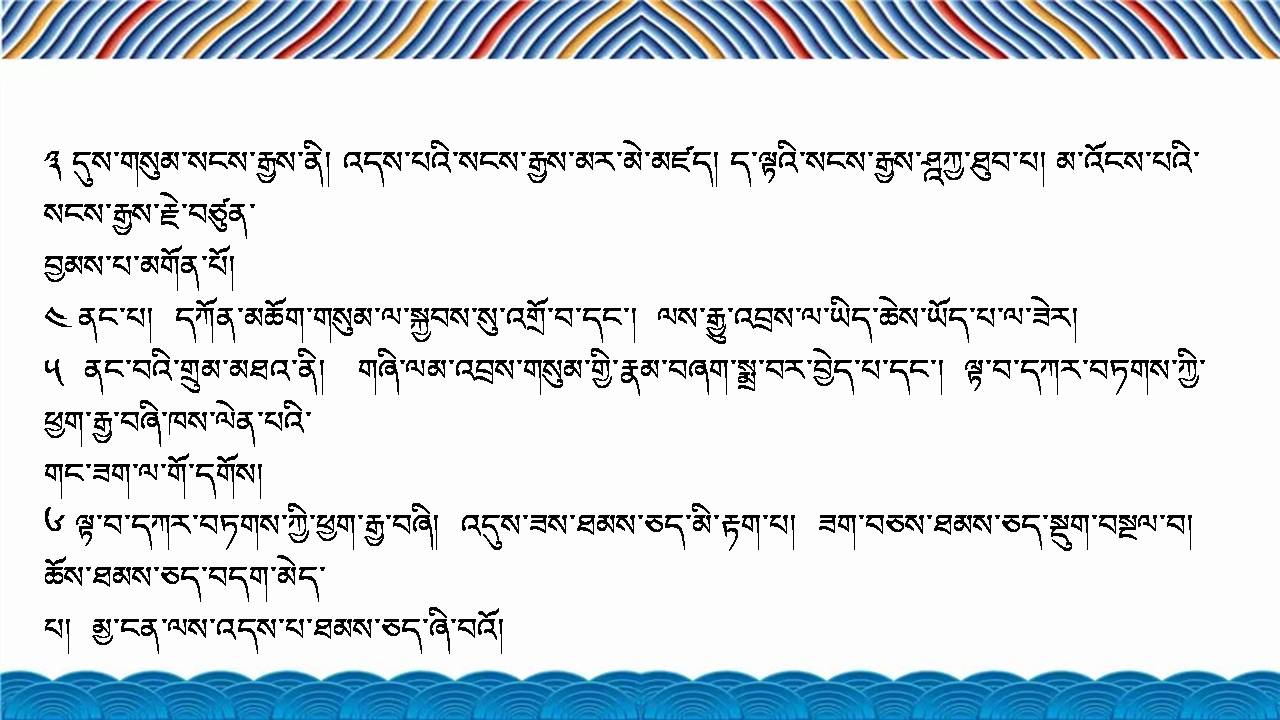 ༣ དུས་གསུམ་སངས་རྒྱས་ནི། འདས་པའི་སངས་རྒྱས་མར་མེ་མཛད། ད་ལྟའི་སངས་རྒྱས་ཤཱཀྱ་ཐུབ་པ། མ་འོངས་པའི་
སངས་རྒྱས་རྗེ་བཙུན་
བྱམས་པ་མགོན་པོ།
༤ ནང་པ།  དཀོན་མཆོག་གསུམ་ལ་སྐྱབས་སུ་འགྲོ་བ་དང་།  ལས་རྒྱུ་འབྲས་ལ་ཡིད་ཆེས་ཡོད་པ་ལ་ཟེར།
༥  ནང་བའི་གྲུམ་མཐའ་ནི།   གཞི་ལམ་འབྲས་གསུམ་གྱི་རྣམ་བཞག་སྨྲ་བར་བྱེད་པ་དང་།  ལྟ་བ་དཀར་བཏགས་ཀྱི་
ཕྱག་རྒྱ་བཞི་ཁས་ལེན་པའི་
གང་ཟག་ལ་གོ་དགོས།
༦ ལྟ་བ་དཀར་བཏགས་ཀྱི་ཕྱག་རྒྱ་བཞི།  འདུས་ཟས་ཐམས་ཅད་མི་རྟག་པ།  ཟག་བཅས་ཐམས་ཅད་སྡུག་བསྔལ་བ།
ཆོས་ཐམས་ཅད་བདག་མེད་
པ།  མྱ་ངན་ལས་འདས་པ་ཐམས་ཅད་ཞི་བའོ།